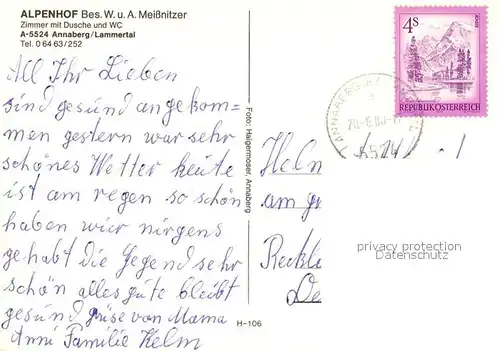 ALPENHOF Bes. W. u. A. Meißnitzer
Zimmer mit Dusche und WC
A-5524 Annaberg/Lammertal
Tel. 0 64 63/252
All Ihr Lieben
sind gesund angekom=
men gestern war sehr
schönes Wetter heute
ist am regen so schön
haben wür nirgens
gehabt die Gegend sehr
schön alles gute bleibt
gesund grüse von Mama
Anni Familie Kelm
Foto: Haigermoser, Annaberg
H-106
4S
REPUBLIK ÖSTERREICH
ANNABERG
5524
Helm
am
Reckl
De
privacy protection
Datenschutz